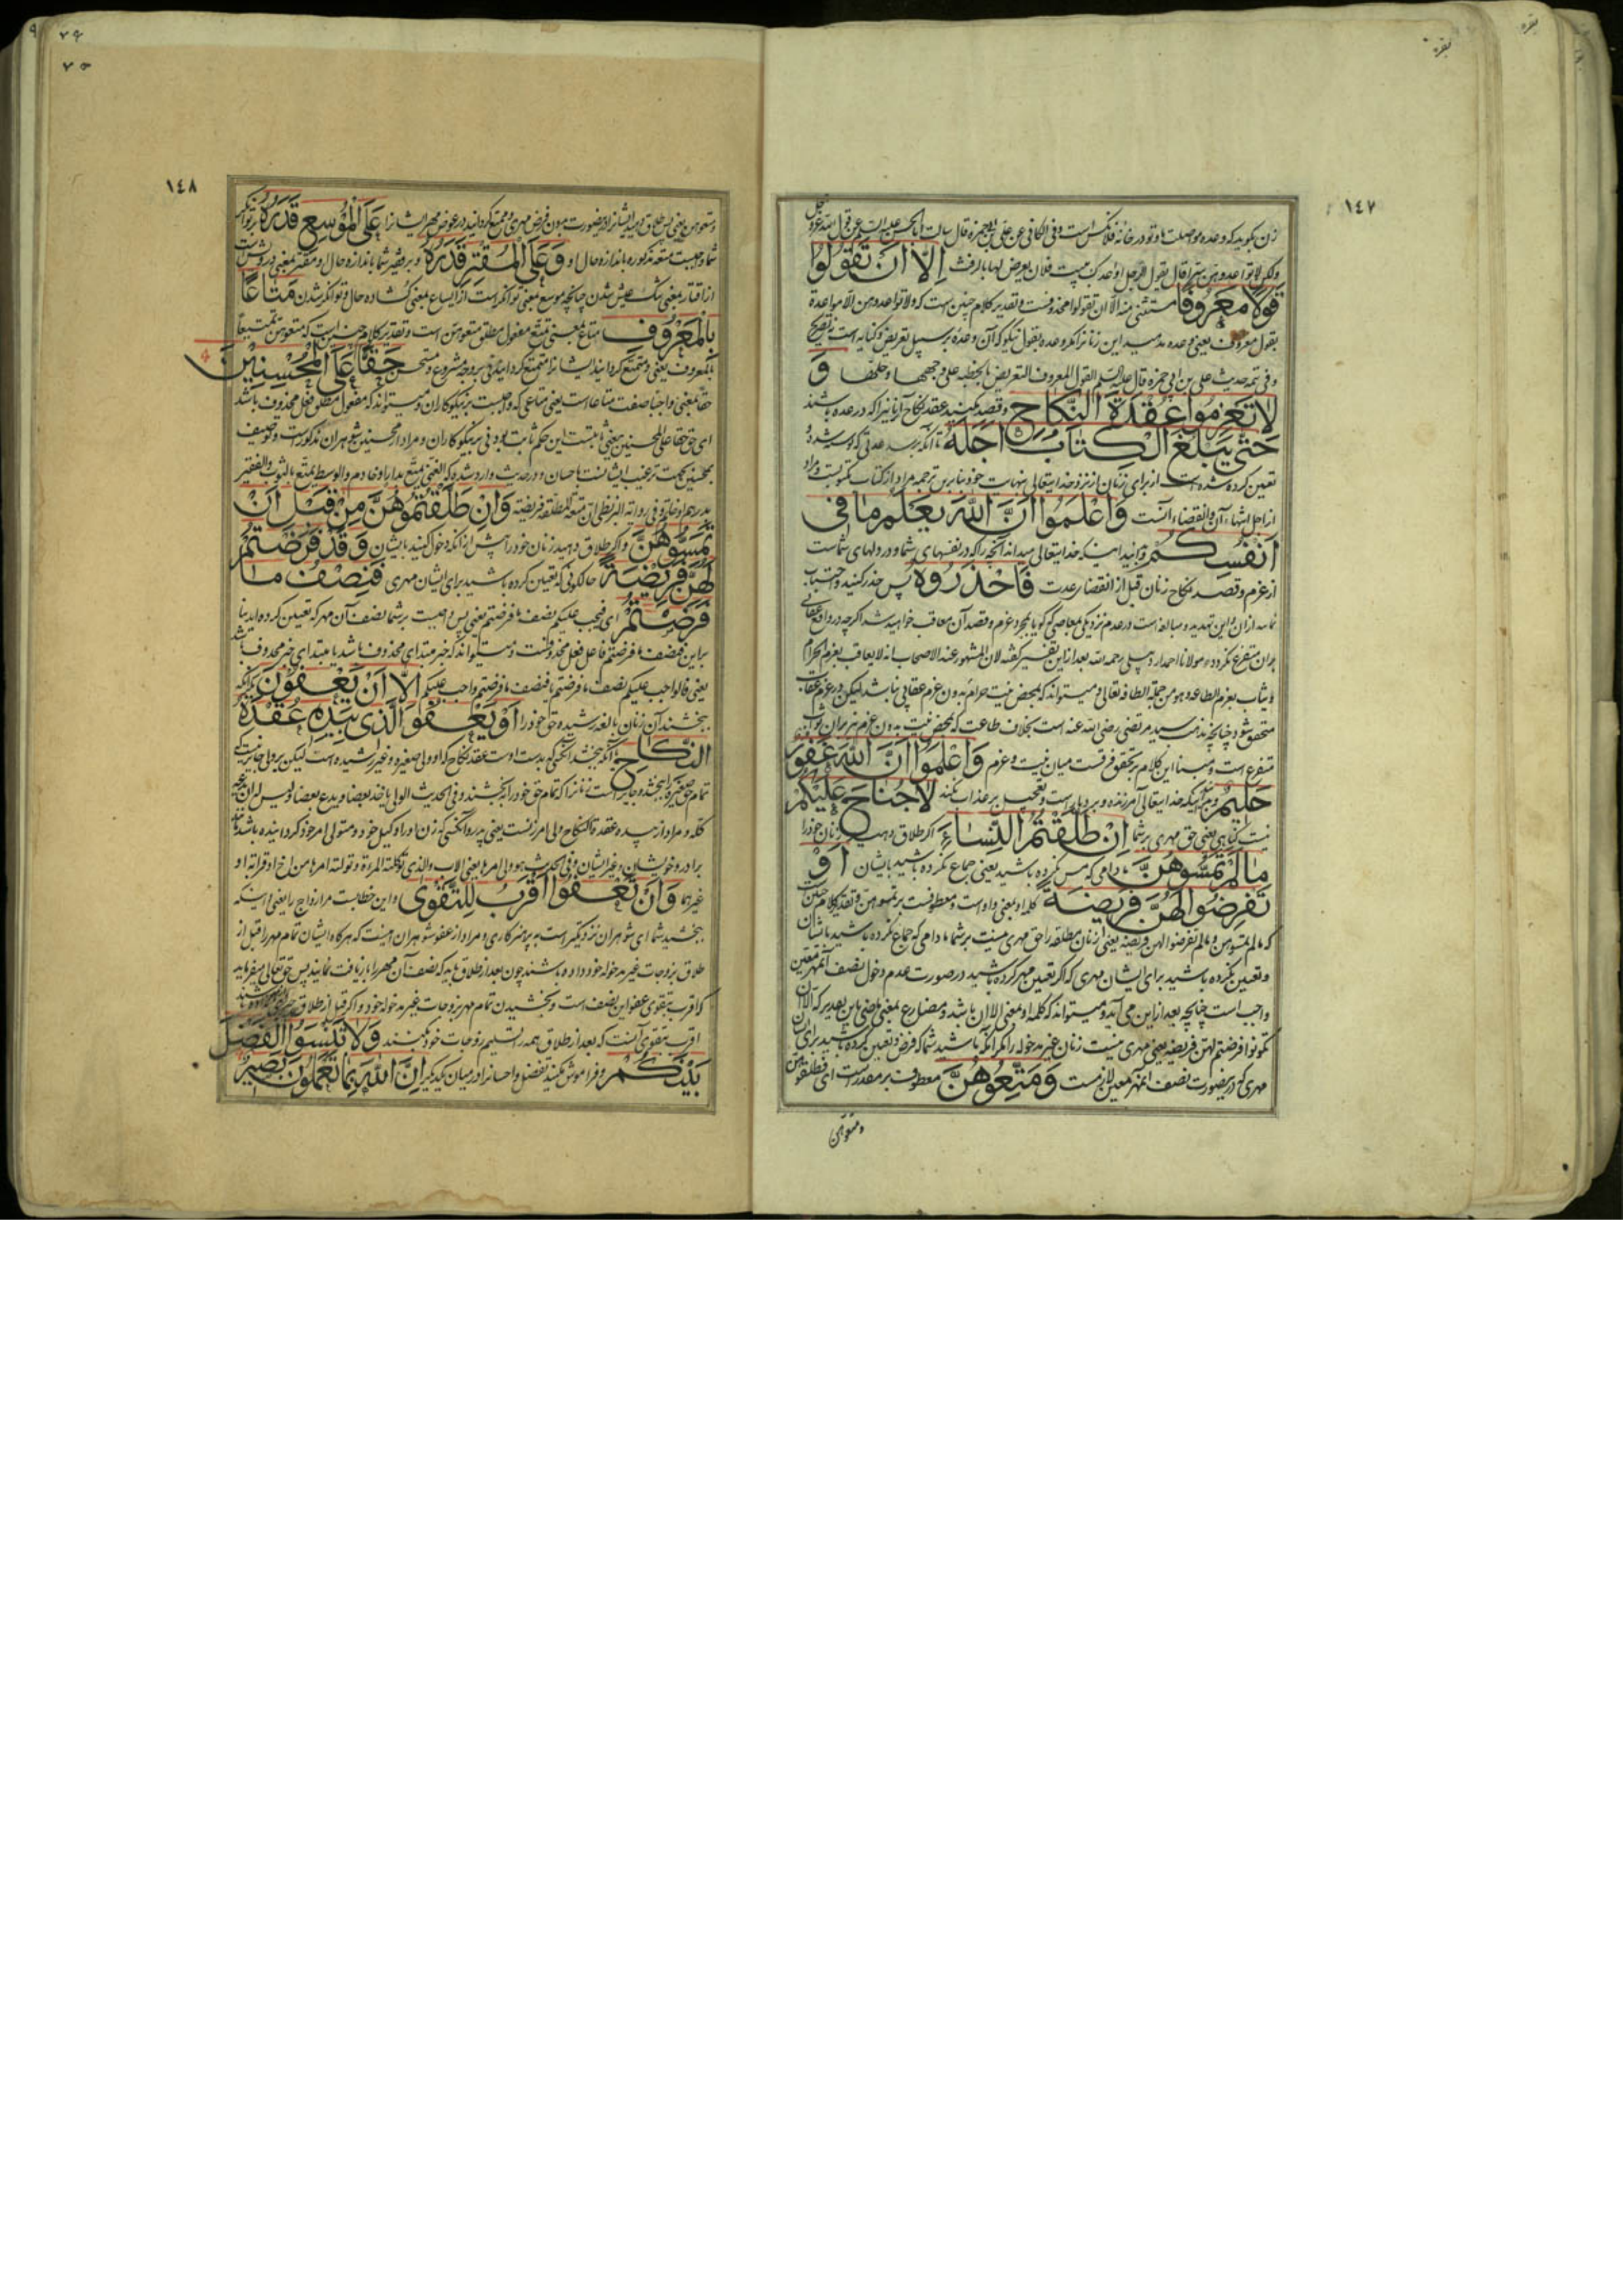 بقره
بقره
١٤٧
زن بگوید که وعده مواصلت ما و تو در خانه فلانکس است و فی الکافی عن علی بن ابی حمزه قال سالت ابا الحسن علیه السلم عن قول الله عز و جل
ولکن لا تواعدوهن سرا قال یقول الرجل اواعدک بیت فلان یعرض لها بالرفث اِلّا اَنْ تَقُولُوا
قَوْلًا مَعْرُوفًا مستثنی منه الا ان تقولوا محذوفست و تقدیر کلام چنین است که ولا تواعدوهن الا مواعدة
بقول معروف یعنی وعده مدهید این زنانرا مگر وعده بقول نیکو که آن وعده بر سبیل تعریض و کنایه است نه تصریح
و فی تتمه حدیث علی بن ابی حمزه قال علیه السلم القول المعروف التعریض بالخطبة علی وجهها و حلها وَ
لَا تَعْزِمُوا عُقْدَةَ النِّكَاحِ و قصد مکنید عقد نکاح آنانیرا که در عده باشند
حَتّٰى يَبْلُغَ الْكِتَابُ اَجَلَهُ تا آنکه برسد عدتی که نوشته شده و
تعیین کرده شده است از برای زنان از نزد خدایتعالی بنهایت خود بنابرین ترجمه مراد از کتاب مکتوبست و مراد
از اجل انتهاء آن و انقضاء آنست وَاعْلَمُوا اَنَّ اللّٰهَ يَعْلَمُ مَا فِي
اَنْفُسِكُمْ و بدانید اینکه خدایتعالی میداند آنچه را که در نفسهای شما و در دلهای شماست
از عزم و قصد نکاح زنان قبل از انقضاء عدت فَاحْذَرُوهُ پس حذر کنید و اجتناب
نمایید از ان و این تهدید و مبالغه است در عدم نزدیکی بمعاصی که گویا بمجرد عزم و قصد آن معاقب خواهید شد اگرچه در واقع عقابی
بران متفرع نگردد مولانا احمد اردبیلی رحمه الله بعد از این تفسیر گفته لان المشهور عند الاصحاب انه لا یعاقب بعزم الحرام
و یثاب بعزم الطاعه و هو من جملة الطافه تعالی و میتواند که بمحض نیت حرام بدون عزم عقابی نباشد لیکن در عزم عقاب
متحقق شود چنانچه مذهب سید مرتضی رضی الله عنه است بخلاف طاعت که بمحض نیت بدون عزم نیز بران ثواب
متفرع است و مبنا این کلام بر تحقق فرقست میان نیت و عزم وَاعْلَمُوا اَنَّ اللّٰهَ غَفُورٌ
حَلِيمٌ و بدانید اینکه خدایتعالی آمرزنده و بردبار است و تعجیل بر عذاب نکند لَا جُنَاحَ عَلَيْكُمْ
نیست گناهی یعنی حق مهری بر شما اِنْ طَلَّقْتُمُ النِّسَاءَ اگر طلاق دهید زنان خود را
مَا لَمْ تَمَسُّوهُنَّ مادامی که مس نکرده باشید یعنی جماع نکرده باشید بایشان اَوْ
تَفْرِضُوا لَهُنَّ فَرِيضَةً کلمه او بمعنی واو است و معطوفست بر تمسوهن و تقدیر کلام چنین
که ما لم تمسوهن و ما لم تفرضوا لهن فریضة یعنی از زنان مطلقه را حق مهری نیست بر شما مادامی که جماع نکرده باشید بایشان
و تعیین نکرده باشید برای ایشان مهری که اگر تعیین مهر کرده باشید در صورت عدم دخول نصف آنمهر معین
واجب است چنانچه بعد از این می آید و میتواند که کلمه او بمعنی الا ان باشد و مضارع بمعنی ماضی باین تقدیر که الا ان
تکونوا فرضتم لهن فریضة یعنی مهری نیست زنان غیر مدخوله را مگر آنکه باشید شما که فرض و تعیین کرده باشید برای ایشان
مهری که در ینصورت نصف آنمهر معین لازمست وَمَتِّعُوهُنَّ معطوف بر مقدر است ای فطلقوهن
ومتعوهن
٧٥
١٤٨
ومتعوهن یعنی پس طلاق دهید ایشانرا در ینصورت بدون فرض مهری و متمتع گردانید در عوض مهر ایشانرا عَلَى الْمُوسِعِ قَدَرُهُ بر توانگر
شما واجبست متعه مذکوره باندازه حال او وَعَلَى الْمُقْتِرِ قَدَرُهُ و بر فقیر شما باندازه حال او مقتر بمعنی درویش است
از اقتار بمعنی تنگ عیش شدن چنانچه موسع بمعنی توانگر است از ایساع بمعنی گشاده حال و توانگر شدن مَتَاعًا
بِالْمَعْرُوفِ متاع بمعنی تمتع مفعول مطلق متعوهن است و تقدیر کلام چنین است که متعوهن تمتیعا
بالمعروف یعنی و متمتع گردانید ایشانرا متمتع گردانیدنی بر وجه مشروع و مستحسن حَقًّا عَلَى الْمُحْسِنِينَ
حقا بمعنی واجبا صفت متاعا است یعنی متاعی که واجبست بر نیکوکاران و میتواند که مفعول مطلق فعل محذوف باشد
ای حق حقا علی المحسنین یعنی ثابتست این حکم ثابت بودنی بر نیکوکاران و مراد از محسنین شوهران مذکور است و توصیف
بمحسنین بجهت ترغیب ایشانست باحسان و در حدیث وارد شده که الغنی یمتع بدار او خادم و الوسط یمتع بالثوب و الفقیر
بدرهم او خاتم و فی روایة البزنطی ان متعة المطلقة فریضة وَاِنْ طَلَّقْتُمُوهُنَّ مِنْ قَبْلِ اَنْ
تَمَسُّوهُنَّ و اگر طلاق دهید زنان خود را پیش از آنکه دخول کنید بایشان وَقَدْ فَرَضْتُمْ
لَهُنَّ فَرِيضَةً حالکونی که تعیین کرده باشید برای ایشان مهری فَنِصْفُ مَا
فَرَضْتُمْ ای فیجب علیکم نصف ما فرضتم یعنی پس واجبست بر شما نصف آن مهر که تعیین کرده اید بنا
براین فنصف ما فرضتم فاعل فعل محذوفست و میتواند که خبر مبتدای محذوف باشد یا مبتدای خبر محذوف باشد
یعنی فالواجب علیکم نصف ما فرضتم یا فنصف ما فرضتم واجب علیکم اِلَّا اَنْ يَعْفُونَ مگر آنکه
ببخشند آن زنان بالغه رشیده حق خود را اَوْ يَعْفُوَ الَّذِي بِيَدِهِ عُقْدَةُ
النِّكَاحِ یا آنکه ببخشد آنکسی که بدست اوست عقد نکاح که او ولی صغیره و غیر رشیده است لیکن بر ولی جایز نیست که
تمام حق صغیره را ببخشد و جایز است زنانرا که تمام حق خود را ببخشند و فی الحدیث الولی یاخذ بعضا و یدع بعضا و لیس له ان یدع
کله و مراد از بیده عقدة النکاح ولی امر زنست یعنی پدر و آنکسی که زن او را وکیل خود و متولی امر خود گردانیده باشد مثل
برادر و خویشان و غیر ایشان و فی الحدیث هو ولی امرها یعنی الاب و الذی توکله المراة و تولته امرها من اخ او قرابة او
غیرهما وَاَنْ تَعْفُوا اَقْرَبُ لِلتَّقْوٰى و این خطابست مر ازواج را یعنی اینکه
ببخشید شما ای شوهران نزدیکتر است به پرهیزکاری و مراد از عفو شوهران اینست که هرگاه ایشان تمام مهر را قبل از
طلاق بزوجات غیر مدخوله خود داده باشند چون بعد از طلاق باید که نصف آن مهر را بازیافت نمایند پس حق تعالی میفرماید
که اقرب بتقوی عفو این نصف است و بخشیدن تمام مهر بزوجات غیر مدخوله خود و اگر قبل از طلاق
اقرب بتقوی آنست که بعد از طلاق همه را تسلیم زوجات خود کنند وَلَا تَنْسَوُا الْفَضْلَ
بَيْنَكُمْ و فراموش مکنید تفضل و احسانرا در میان یکدیگر اِنَّ اللّٰهَ بِمَا تَعْمَلُونَ بَصِيرٌ